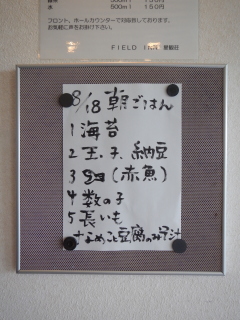 水 900ml 150円
フロント、ホールカウンターで対応致しております。
お気軽に声をお掛け下さい。
FIELD INN
8/18 朝ごはん
1 海苔
2 玉子、納豆
3 (赤魚)
4 数の子
5 長いも
なめこと豆腐のみそ汁